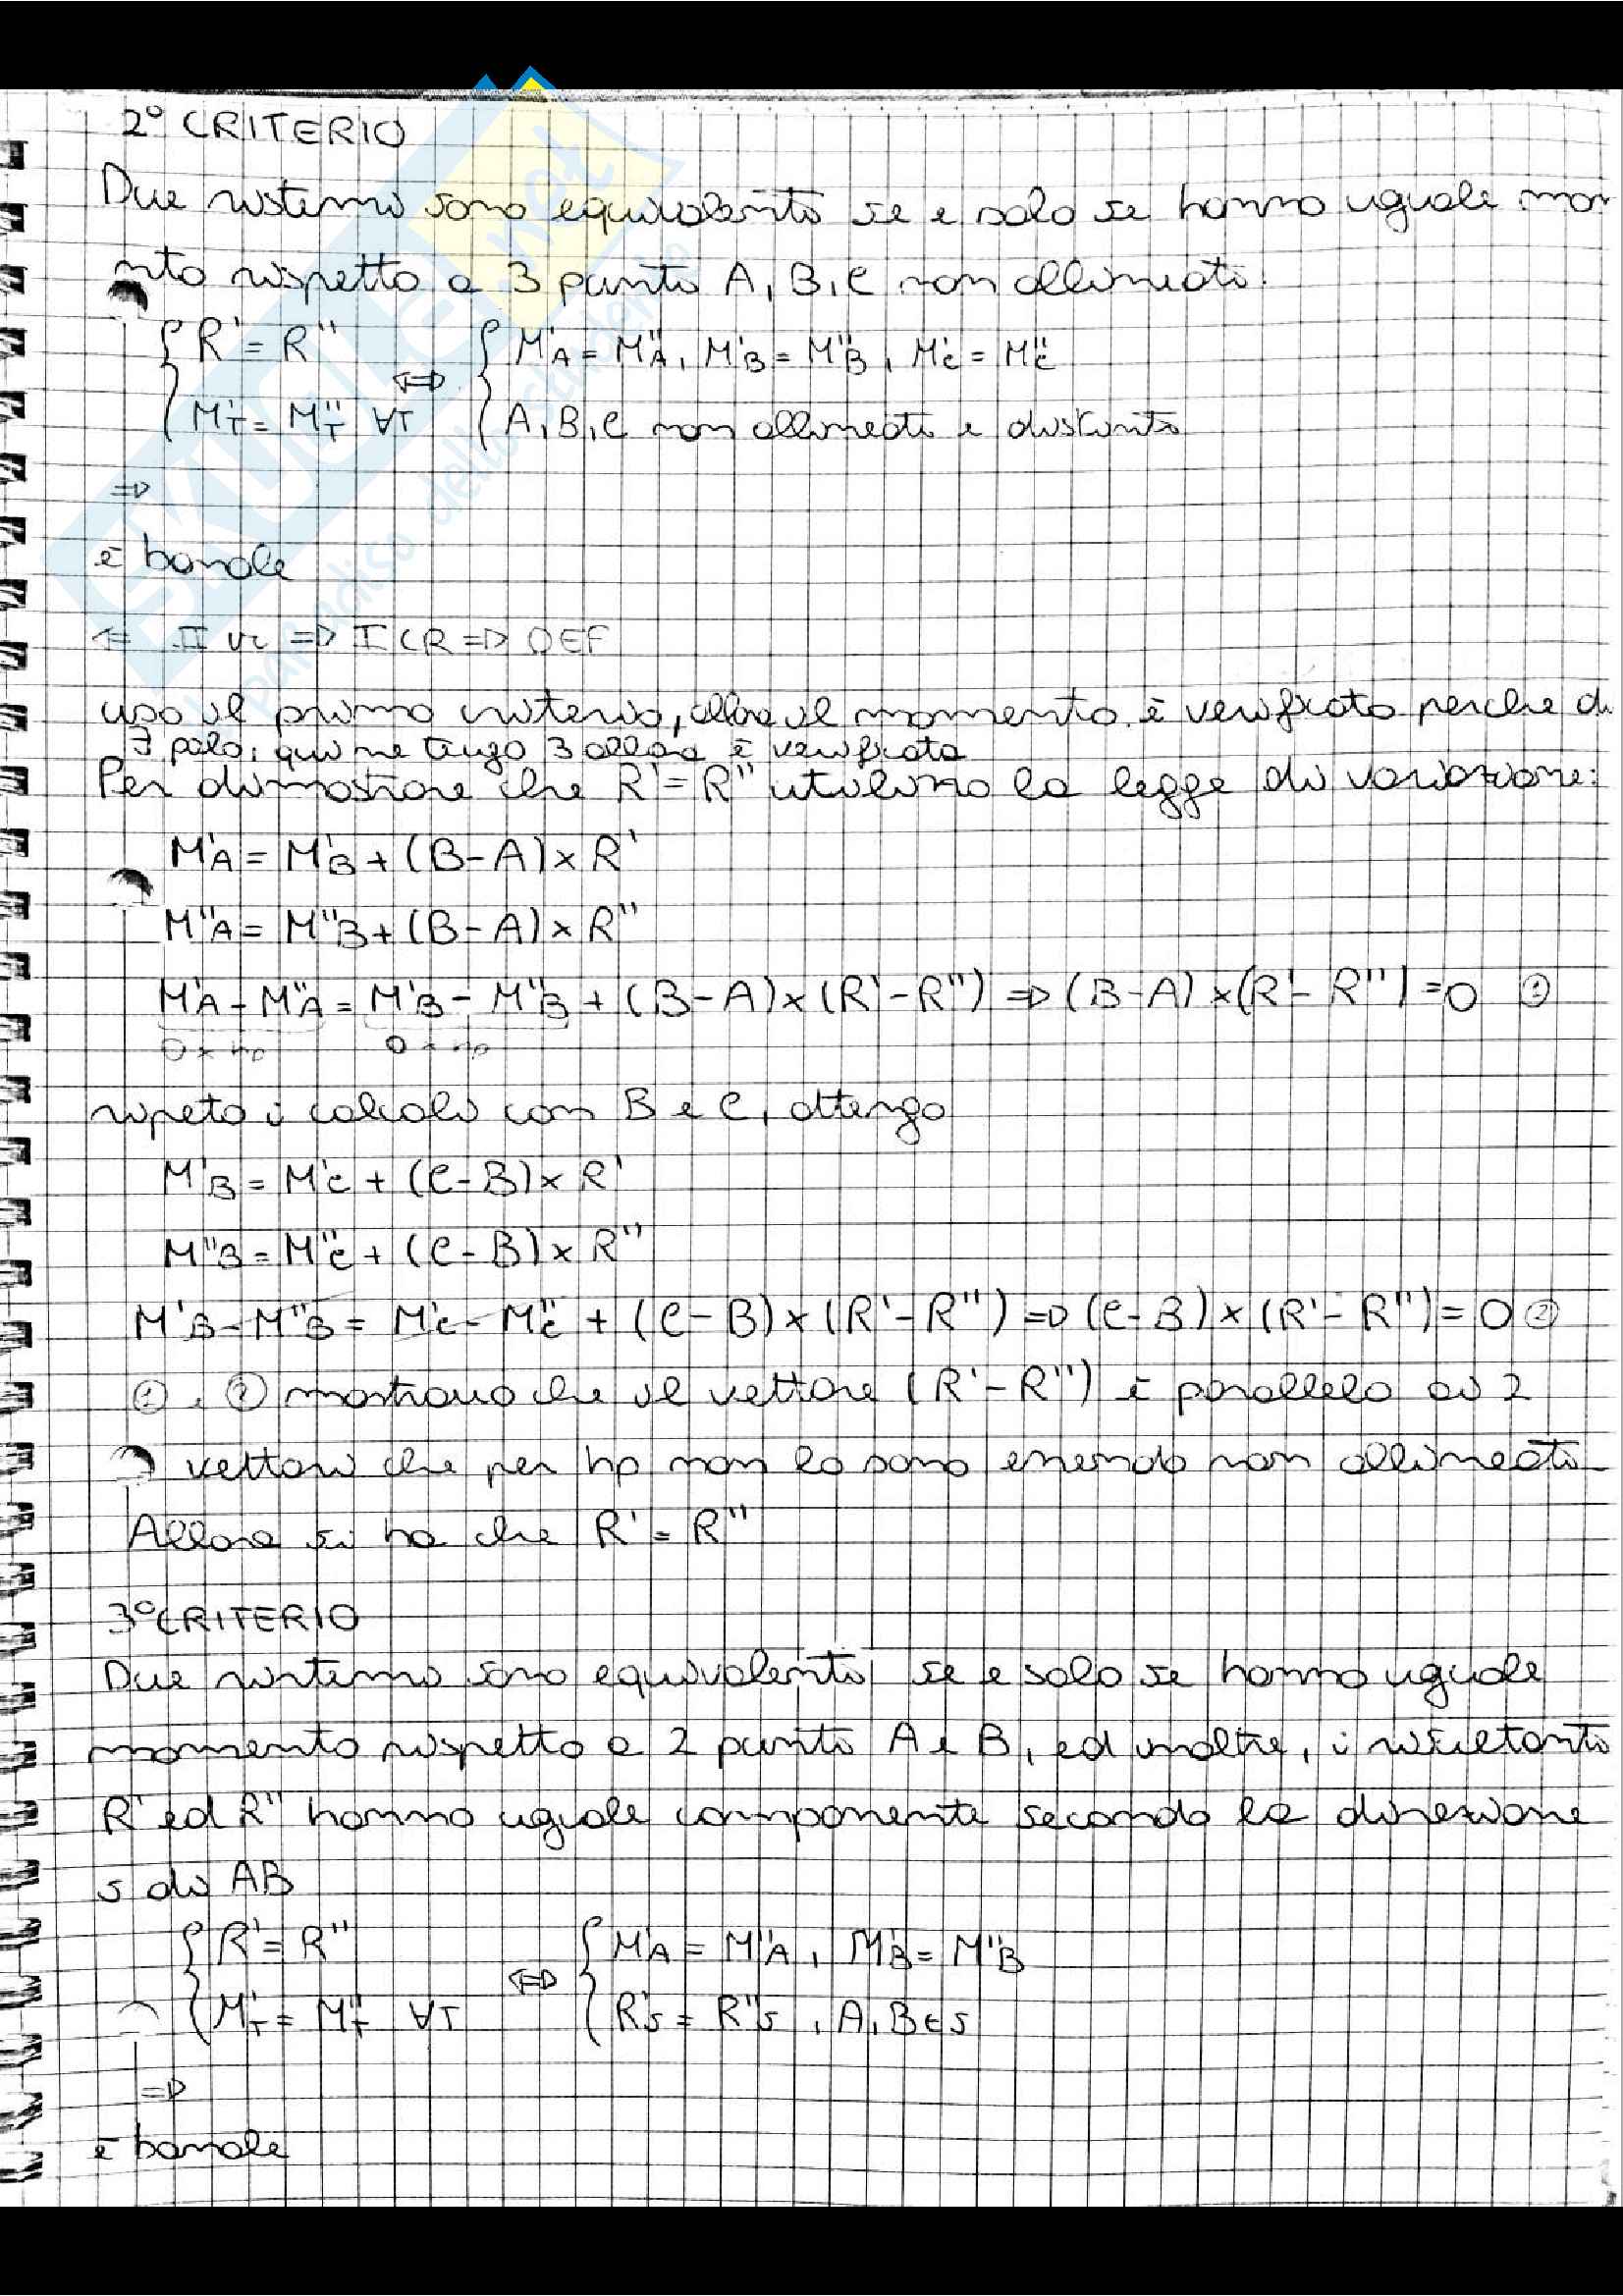 2° CRITERIO
Due sistemi sono equivalenti se e solo se hanno uguale mom
nto rispetto a 3 punti A, B, C non allineati.
{ R' = R'' { M'A = M''A, M'B = M''B, M'C = M''C
⇔
{ M'T = M''T ∀T { A, B, C non allineati e distinti
⇒
è banale
⇐ II cr ⇒ I CR ⇒ DEF
uso il primo criterio, allora il momento è verificato perche di
∃ polo, qui ne tengo 3 allora è verificata
Per dimostrare che R' = R'' utilizzo la legge di variazione:
M'A = M'B + (B-A) × R'
M''A = M''B + (B-A) × R''
M'A - M''A = M'B - M''B + (B-A) × (R' - R'') ⇒ (B-A) × (R' - R'') = 0 ①
0 x hp 0 x hp
ripeto i calcoli con B e C, ottengo
M'B = M'C + (C-B) × R'
M''B = M''C + (C-B) × R''
M'B - M''B = M'C - M''C + (C-B) × (R' - R'') ⇒ (C-B) × (R' - R'') = 0 ②
①, ② mostrano che il vettore (R' - R'') è parallelo ai 2
vettori che per hp non lo sono essendo non allineati
Allora si ha che R' = R''
3° CRITERIO
Due sistemi sono equivalenti se e solo se hanno uguale
momento rispetto a 2 punti A e B, ed inoltre, i risultanti
R' ed R'' hanno uguale componente secondo la direzione
s di AB
{ R' = R'' { M'A = M''A, M'B = M''B
⇔
{ M'T = M''T ∀T { R's = R''s, A, B ∈ s
⇒
è banale